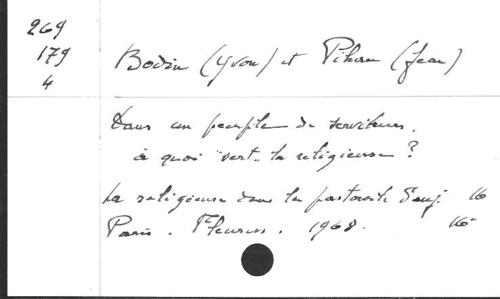 269
179
4
Bodin (Yvon) et Pihan (Jean)
Dans un peuple de serviteurs,
à quoi sert la religieuse ?
La religieuse dans la pastorale d'auj. 16
Paris. Fleurus. 1968. 16°